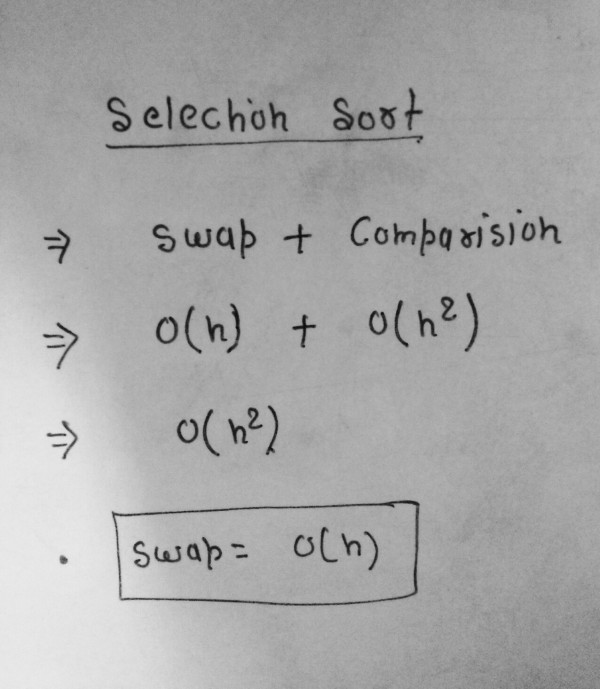 Selection Sort
⇒ Swap + Comparision
⇒ O(n) + O(n²)
⇒ O(n²)
. Swap = O(n)